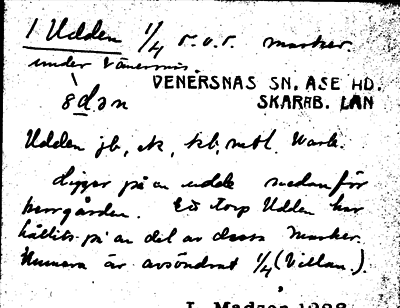 1 Udden 1/4 r.o.r. marker.
under Vänersnäs.
VENERSNAS SN. ASE HD.
ədən SKARAB. LAN
Udden jb, ek, kb,
Ligger på en udde nedanför
herrgården. Ett torp Udden har
hållits på en del av dess marker.
Numera är avsöndrat 1/4 (Villan.).